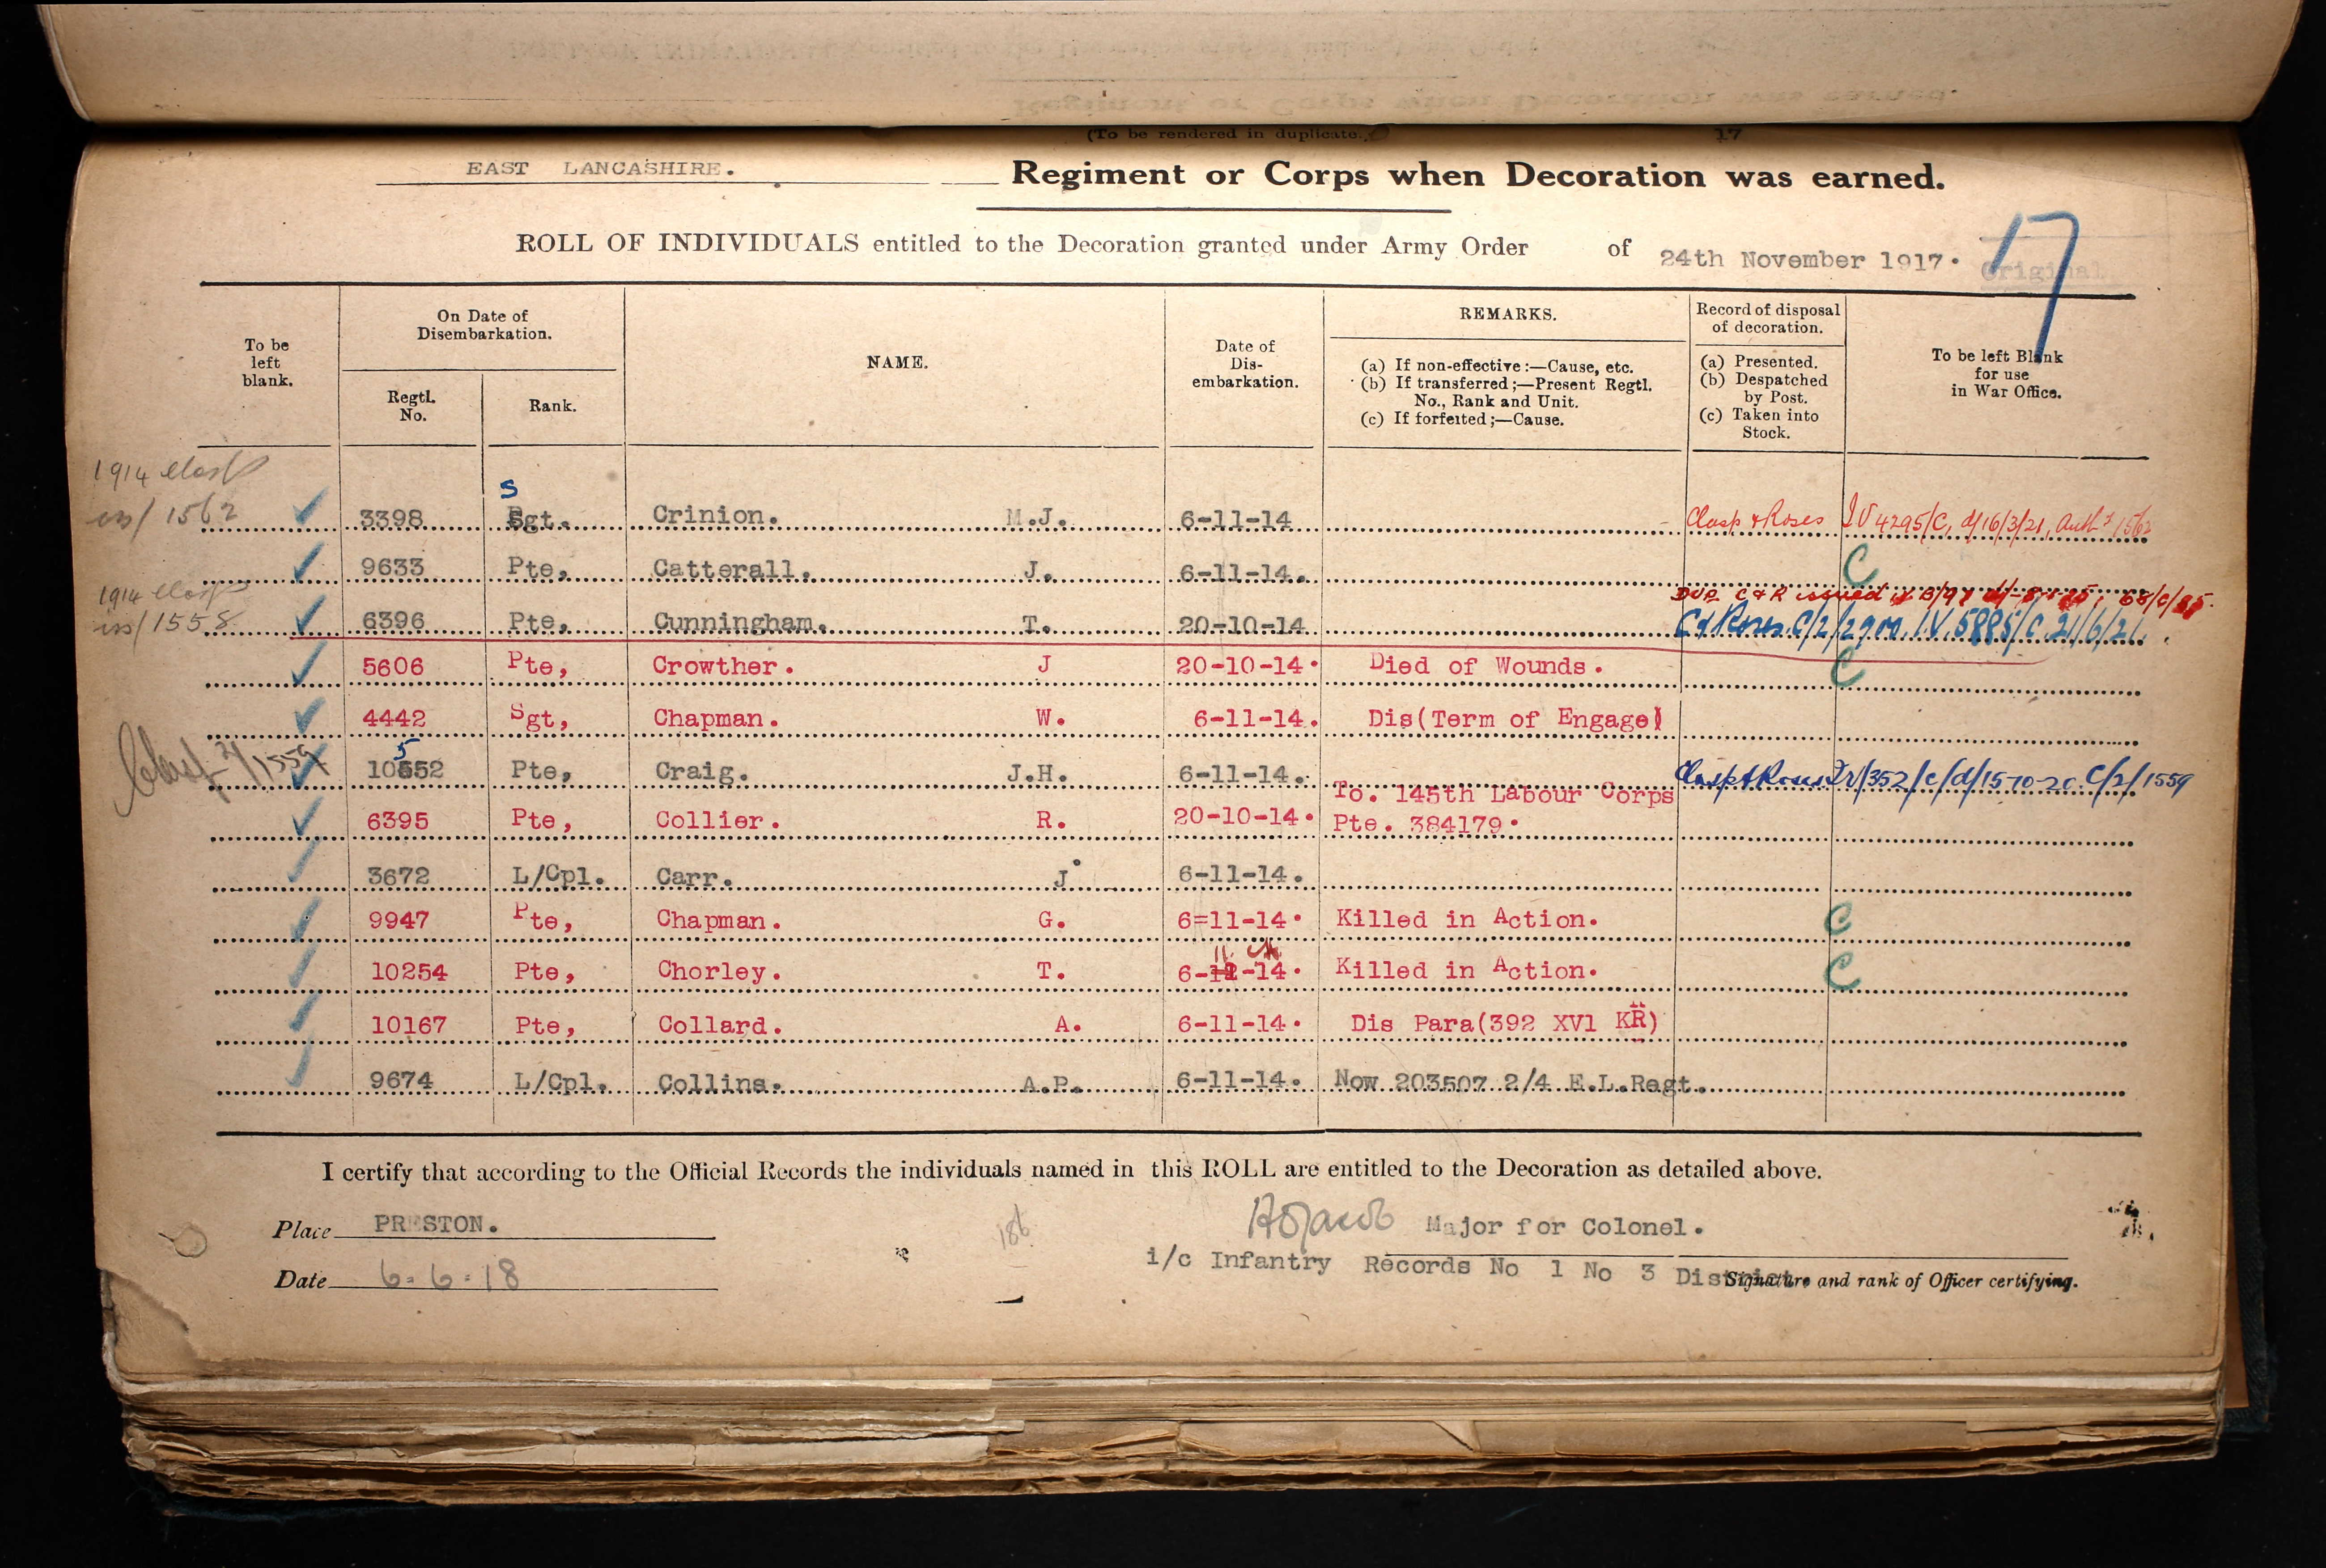 (To be rendered in duplicate.) 17
EAST LANCASHIRE. Regiment or Corps when Decoration was earned.
ROLL OF INDIVIDUALS entitled to the Decoration granted under Army Order of 24th November 1917. 17
Original
To be left blank.
On Date of Disembarkation.
Regtl. No.
Rank.
NAME.
Date of Dis-embarkation.
REMARKS.
(a) If non-effective:—Cause, etc.
(b) If transferred;—Present Regtl. No., Rank and Unit.
(c) If forfeited;—Cause.
Record of disposal of decoration.
(a) Presented.
(b) Despatched by Post.
(c) Taken into Stock.
To be left Blank for use in War Office.
1914 clasp
iss/1562 3398 Sgt. Crinion. M.J. 6-11-14 Clasp & Roses IV 4295/C, d/16/3/21, Auth 2/1562
9633 Pte, Catterall. J. 6-11-14. C
1914 clasp
iss/1558 6396 Pte, Cunningham. T. 20-10-14 C & Roses C/2/2900 IV 5885/C 21/6/21
5606 Pte, Crowther. J 20-10-14. Died of Wounds. C
4442 Sgt, Chapman. W. 6-11-14. Dis(Term of Engage)
Clasp 2/1559 10552 Pte, Craig. J.H. 6-11-14. Clasp & Roses Iv/352/C/d/15-10-20 C/2/1559
6395 Pte, Collier. R. 20-10-14. To. 145th Labour Corps
Pte. 384179.
3672 L/Cpl. Carr. J. 6-11-14.
9947 Pte, Chapman. G. 6=11-14. Killed in Action. C
10254 Pte, Chorley. T. 6-11-14. Killed in Action. C
10167 Pte, Collard. A. 6-11-14. Dis Para(392 XVl KR)
9674 L/Cpl. Collins. A.P. 6-11-14. Now 203507 2/4 E.L.Regt.
I certify that according to the Official Records the individuals named in this ROLL are entitled to the Decoration as detailed above.
Place PRESTON. Major for Colonel.
i/c Infantry Records No 1 No 3 District.
Date 6.6.18 Signature and rank of Officer certifying.